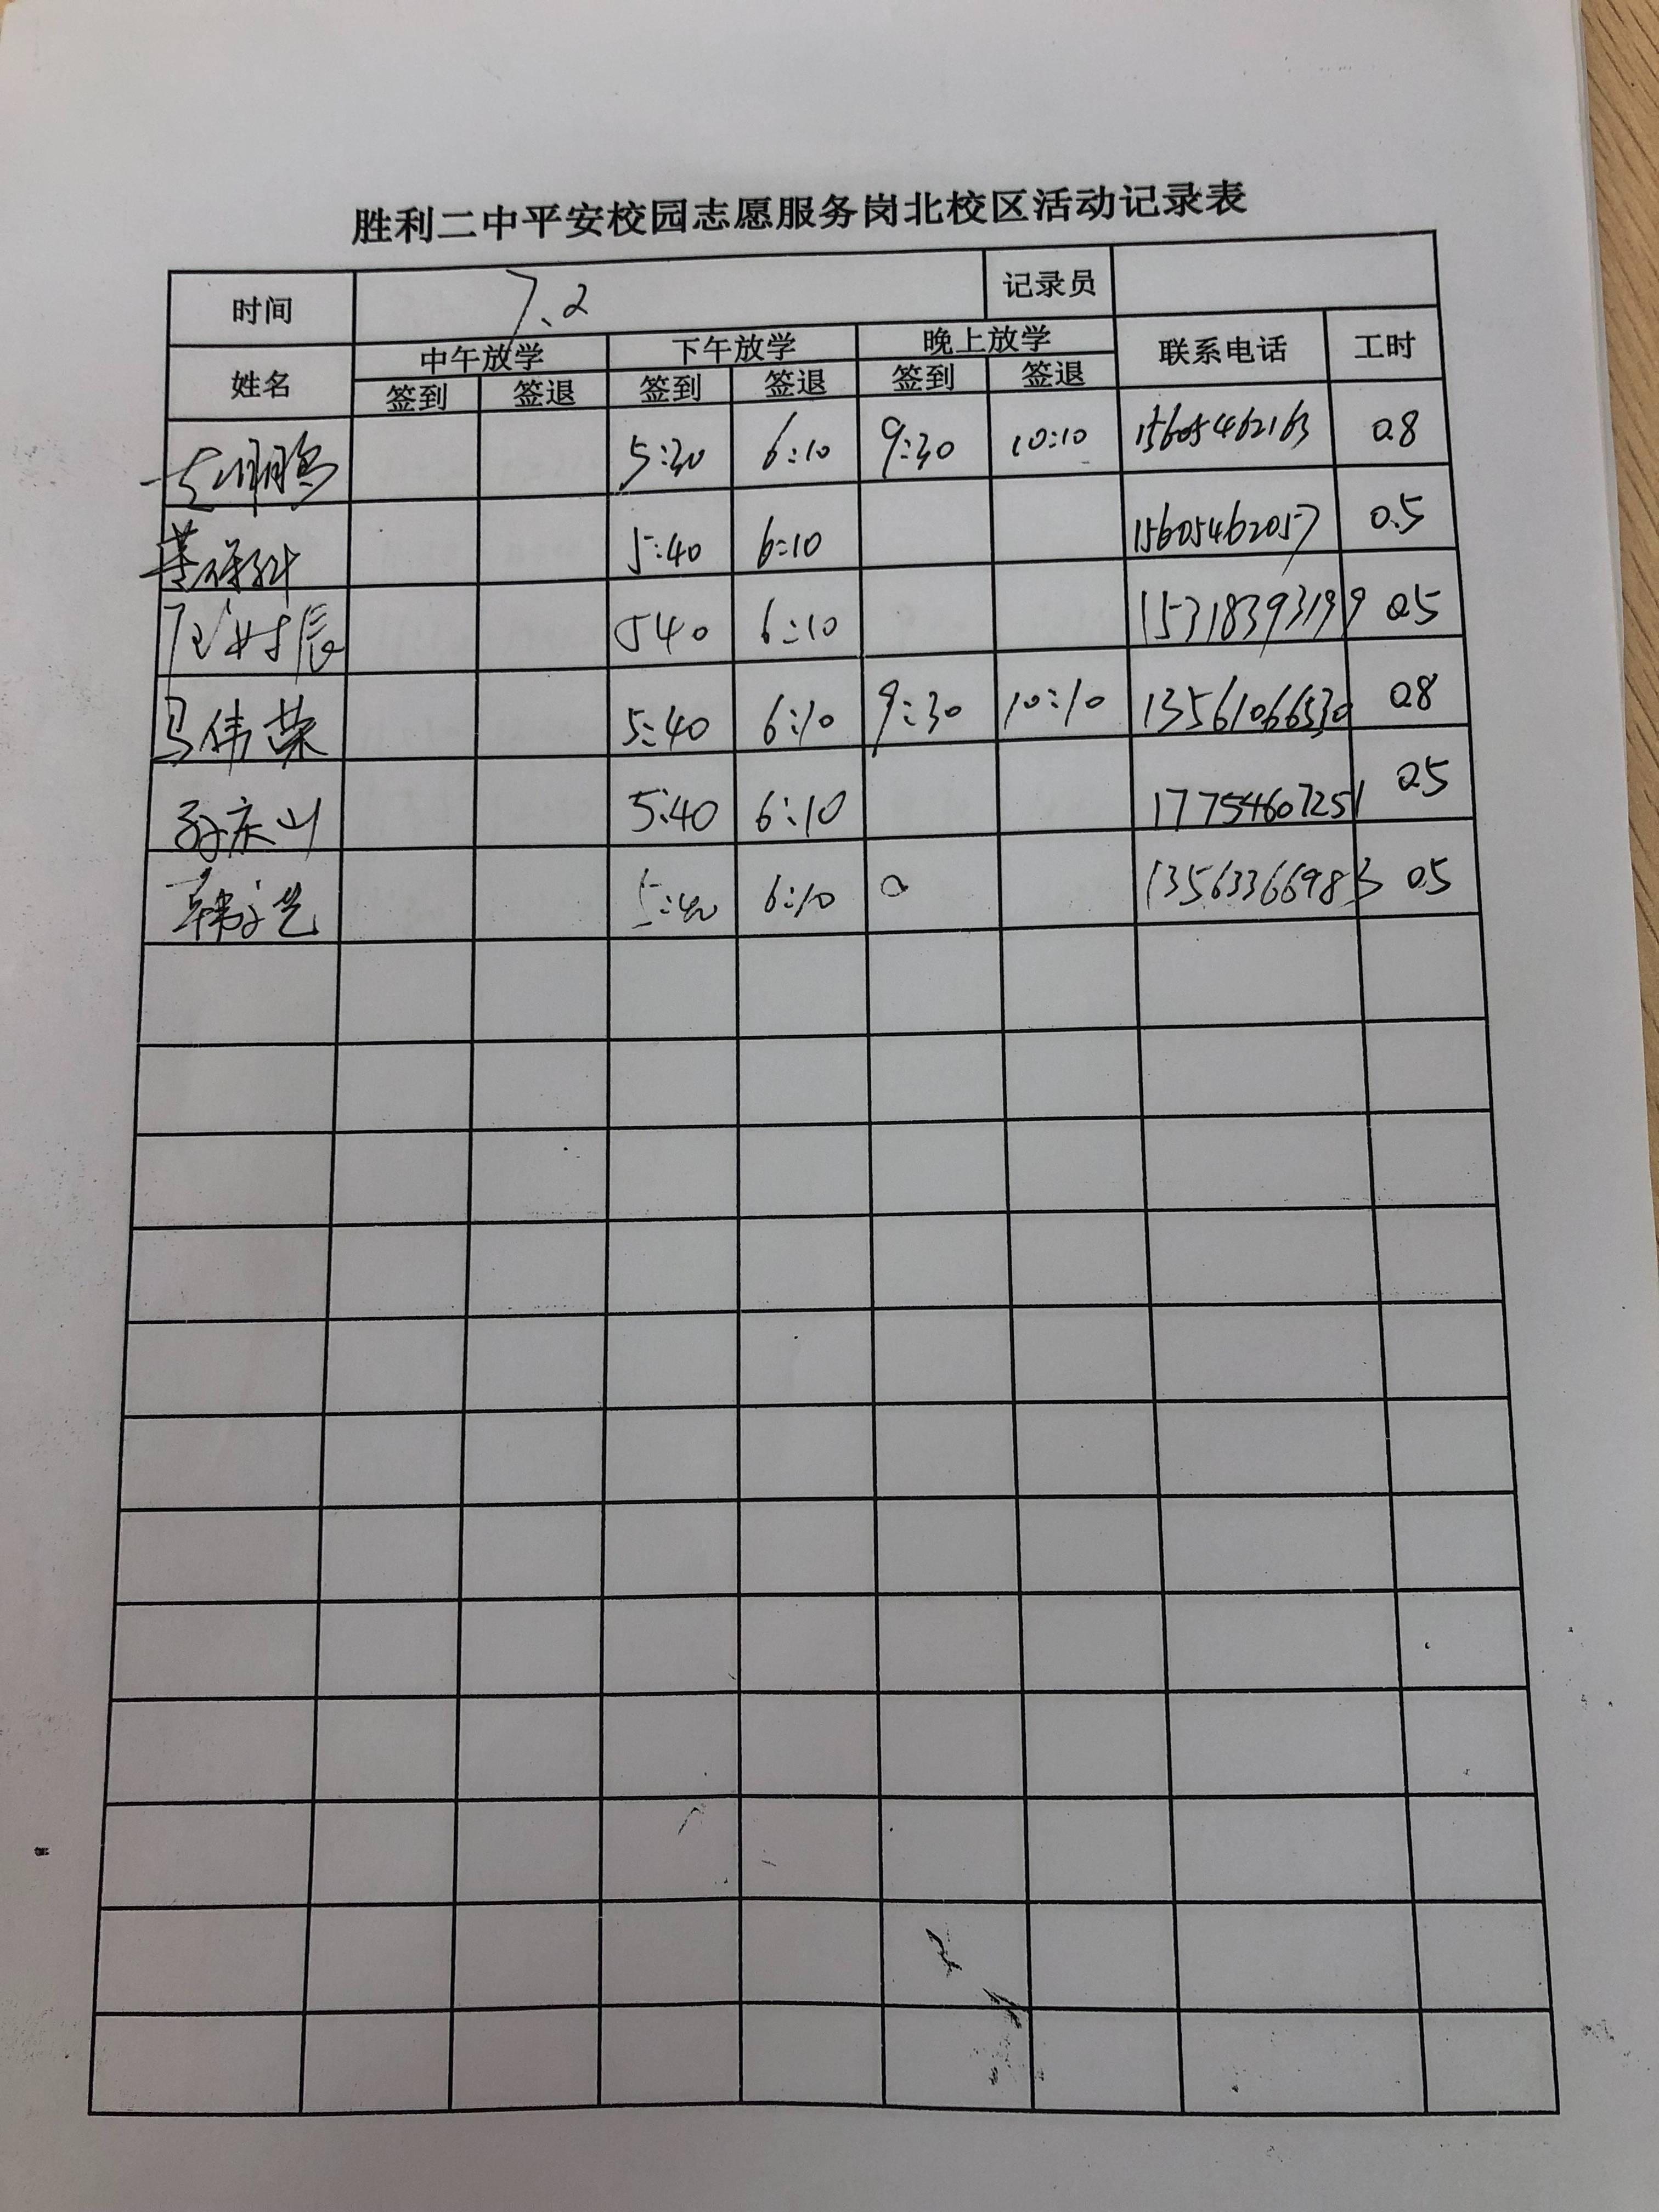 胜利二中平安校园志愿服务岗北校区活动记录表
时间 7、2 记录员
姓名 中午放学 下午放学 晚上放学 联系电话 工时
签到 签退 签到 签退 签到 签退
5:30 6:10 9:30 10:10 15605462163 0.8
5:40 6:10 15605462057 0.5
540 6:10 15318393199 0.5
马伟荣 5:40 6:10 9:30 10:10 13561066530 0.8
孙庆山 5:40 6:10 17754607251 0.5
韩文艺 5:40 6:10 13563366983 0.5